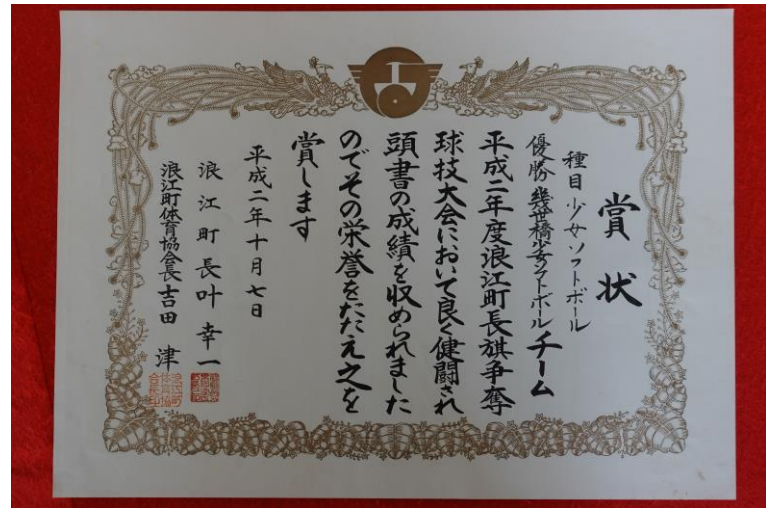 賞状
種目 少女ソフトボール
優勝 幾世橋少女ソフトボールチーム
平成二年度浪江町長旗争奪
球技大会において良く健闘され
頭書の成績を収められました
のでその栄誉をたたえ之を
賞します
平成二年十月七日
浪江町長 叶幸一
浪江町体育協会長 吉田 津